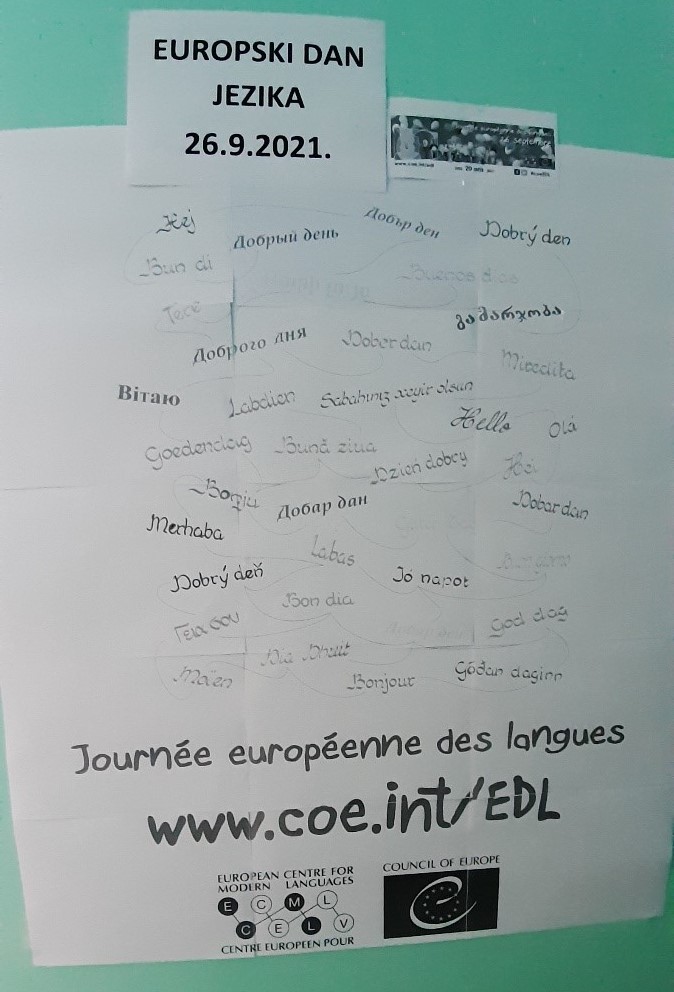 EUROPSKI DAN
JEZIKA
26.9.2021.
www.coe.int/edl
Hej
Добрый день
Добър ден
Dobrý den
Bun di
Buenos días
Tere
გამარჯობა
Доброго дня
Dober dan
Mirëdita
Вiтаю
Labdien
Sabahınız xeyir olsun
Hello
Olá
Goedendag
Bună ziua
Dzień dobry
Hei
Bonġu
Добар дан
Dobar dan
Merhaba
Labas
Buongiorno
Dobrý deň
Jó napot
Bon dia
Γεια σου
God dag
Dia Dhuit
Moïen
Bonjour
Góðan daginn
Journée européenne des langues
www.coe.int/EDL
EUROPEAN CENTRE FOR
MODERN LANGUAGES
COUNCIL OF EUROPE
E C M L
C E L V
CENTRE EUROPEEN POUR